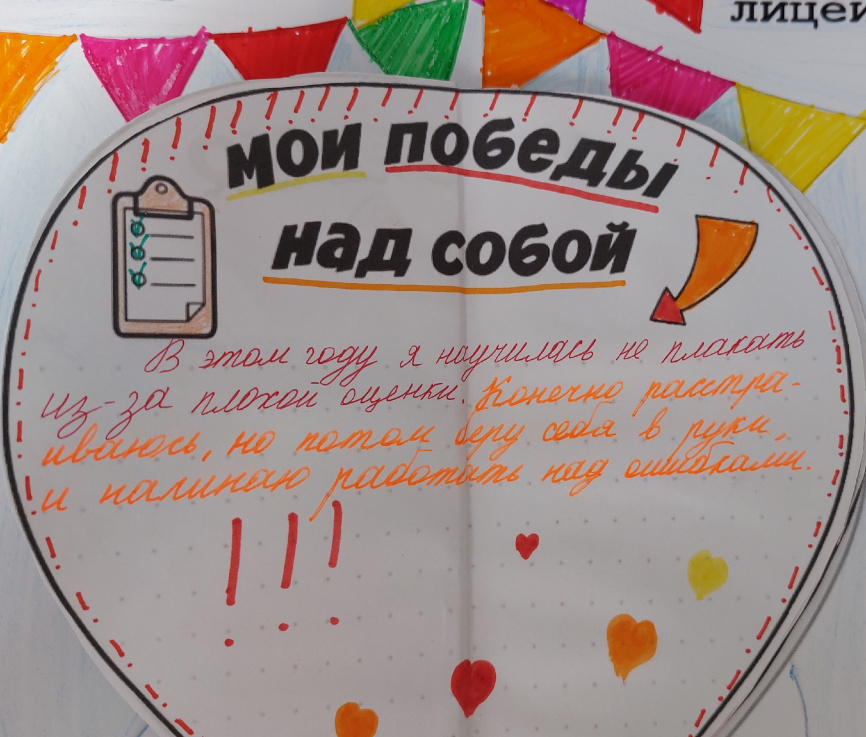 лицей
мои победы
над собой
В этом году я научилась не плакать
из-за плохой оценки. Конечно расстра-
иваюсь, но потом беру себя в руки,
и начинаю работать над ошибками.
!!!